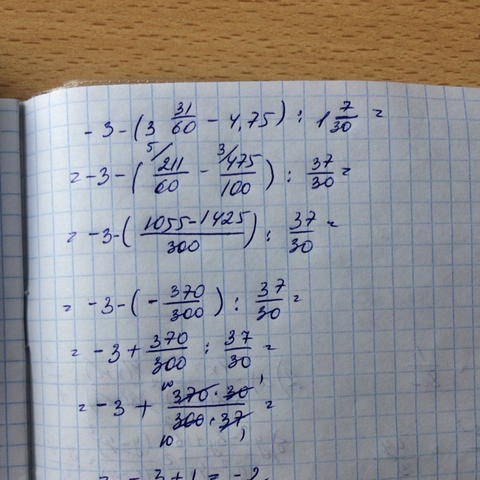 -3-(3 31/60 - 4,75) : 1 7/30 =
= -3-(5/ 211/60 - 3/ 475/100) : 37/30 =
= -3-(1055-1425/300) : 37/30 =
= -3-(-370/300) : 37/30 =
= -3+370/300 : 37/30 =
= -3 + 10 370·30 1/300·37 10 1 =
= -3+1 = -2